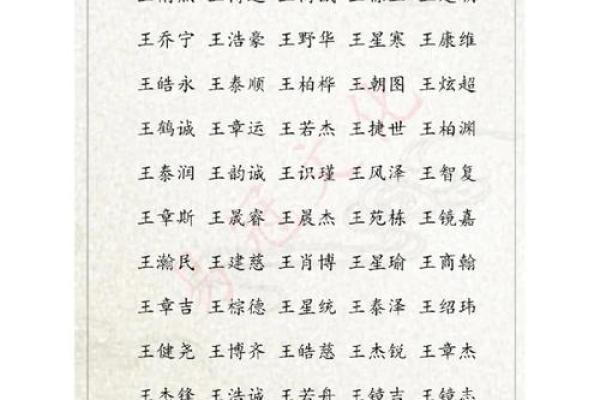 王乔宁 王浩豪 王野华 王星寒 王康维
王皓永 王泰顺 王柏桦 王朝图 王炫超
王鹤诚 王章运 王若杰 王捷世 王柏渊
王泰润 王韵诚 王识瑾 王风泽 王智复
王章斯 王晟睿 王晨杰 王苑栋 王镜嘉
王瀚民 王建慈 王肖博 王星瑜 王商翰
王章吉 王棕德 王星统 王泰泽 王绍玮
王健尧 王博齐 王皓慈 王杰锐 王章杰
王杰锋 王浩诚 王若舟 王镜吉 王镜志